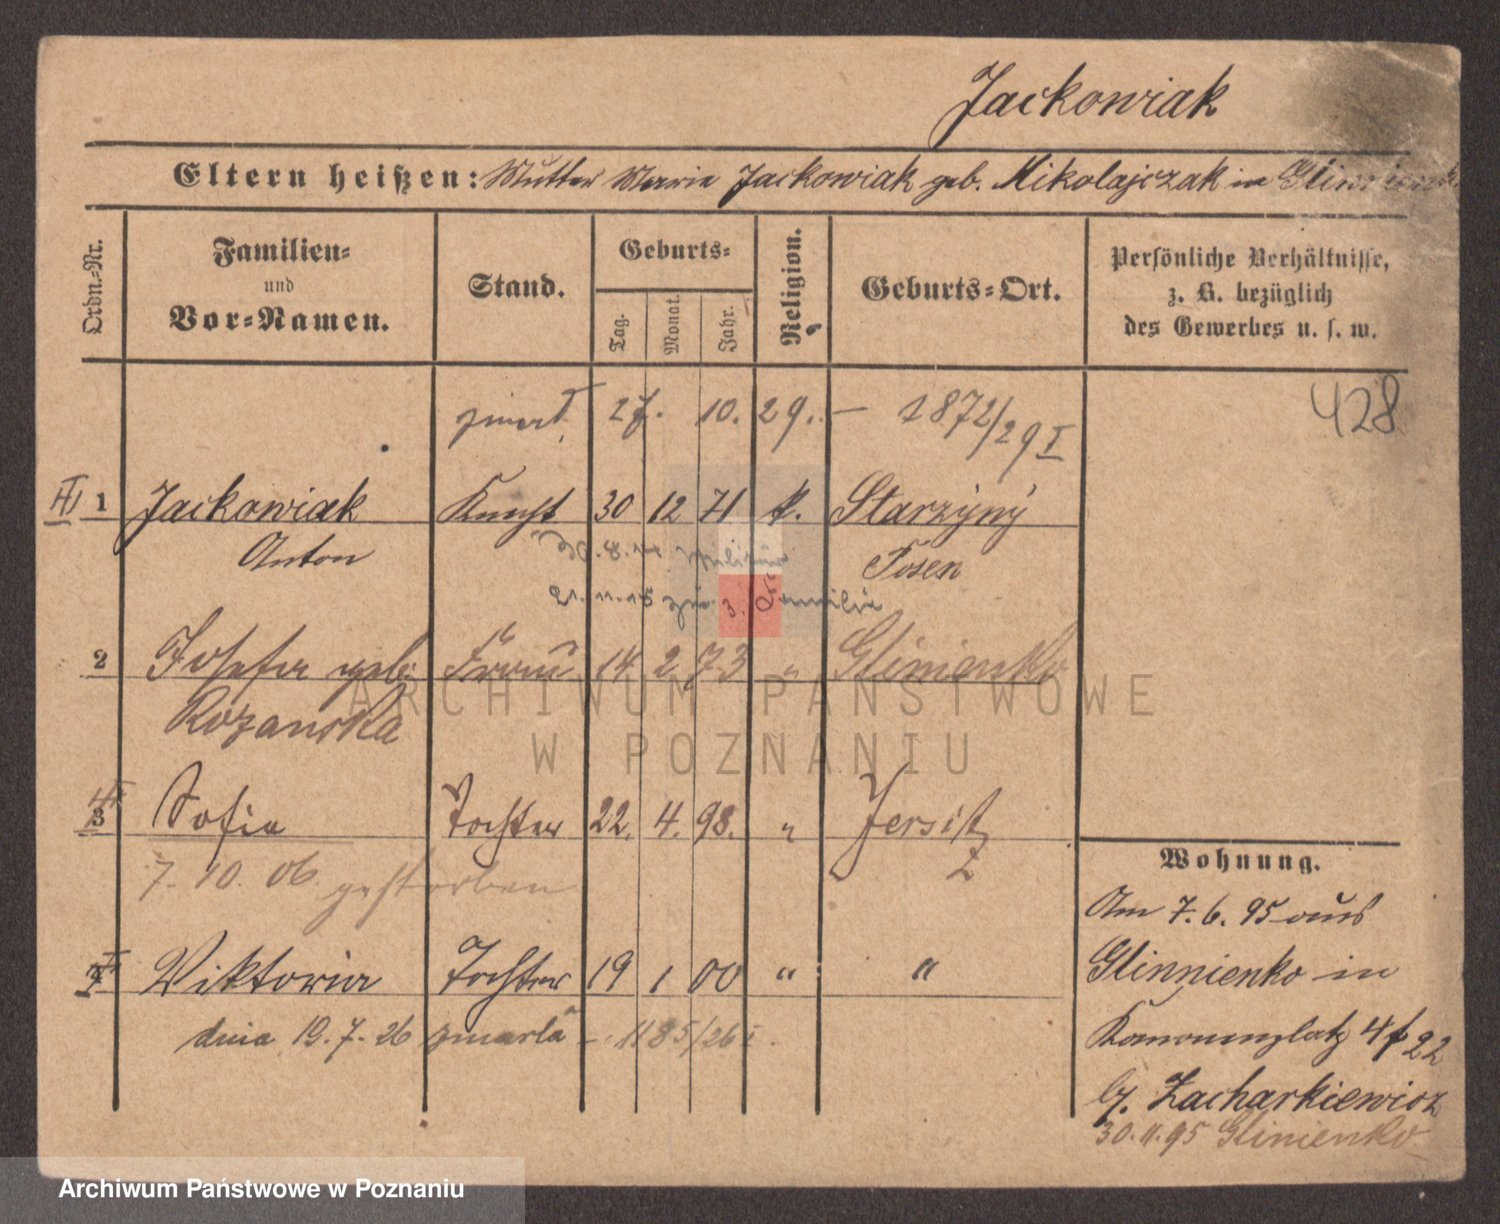 Jackowiak
Eltern heißen: Mutter Marie Jackowiak geb. Mikolajczak in Glinnienko
Ordn.-Nr.
Familien- und Vor-Namen.
Stand.
Geburts-
Tag. Monat. Jahr.
Religion.
Geburts-Ort.
Persönliche Verhältnisse,
z. B. bezüglich
des Gewerbes u. s. w.
zmarł 27. 10. 29. – 1872/29 I
428
1 Jackowiak Knecht 30 12 71 k. Starzyny
Anton Posen
2 Josefa geb: Frau 14 2 73 " Glinienko
Rozanska
3 Sofia Tochter 22. 4. 98. " Jersitz
7. 10. 06. gestorben
4 Viktoria Tochter 19 1 00 " "
dnia 19. 7. 26 zmarła – 1185/26 I.
Wohnung.
Am 7. 6. 95 aus
Glinnienko in
22
Zacharkiewicz
30. 11. 95 Glinienko
ARCHIWUM PAŃSTWOWE
W POZNANIU
Archiwum Państwowe w Poznaniu